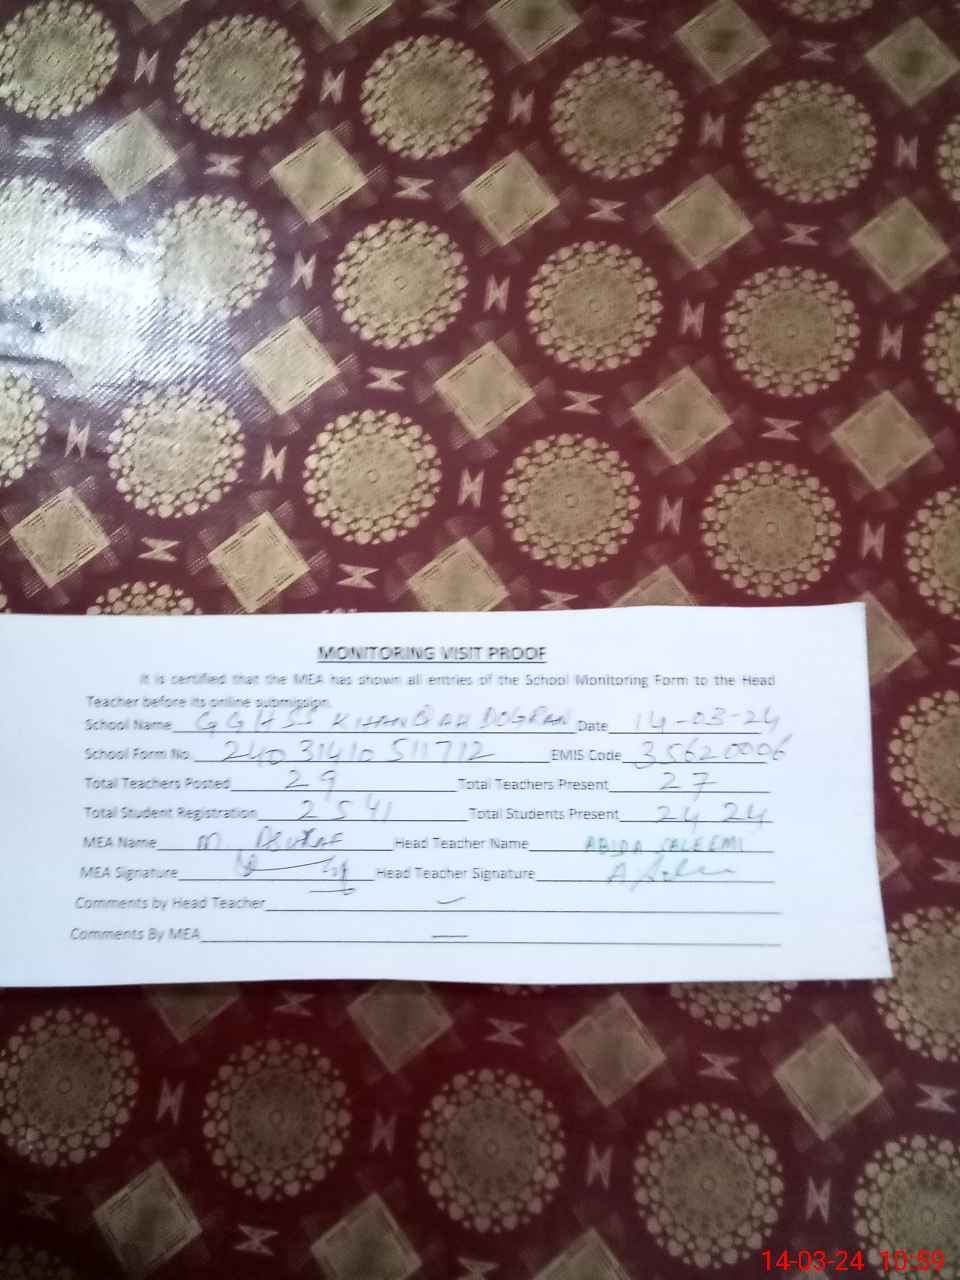 MONITORING VISIT PROOF
It is certified that the MEA has shown all entries of the School Monitoring Form to the Head
Teacher before its online submission.
School Name GGHSS KHANQAH DOGRAN Date 14-03-24
School Form No. 24031410511712 EMIS Code 35620006
Total Teachers Posted 29 Total Teachers Present 27
Total Student Registration 2541 Total Students Present 2424
MEA Name M. Head Teacher Name ABIDA SALEEMI
MEA Signature Head Teacher Signature
Comments by Head Teacher
Comments By MEA
14-03-24 10:59